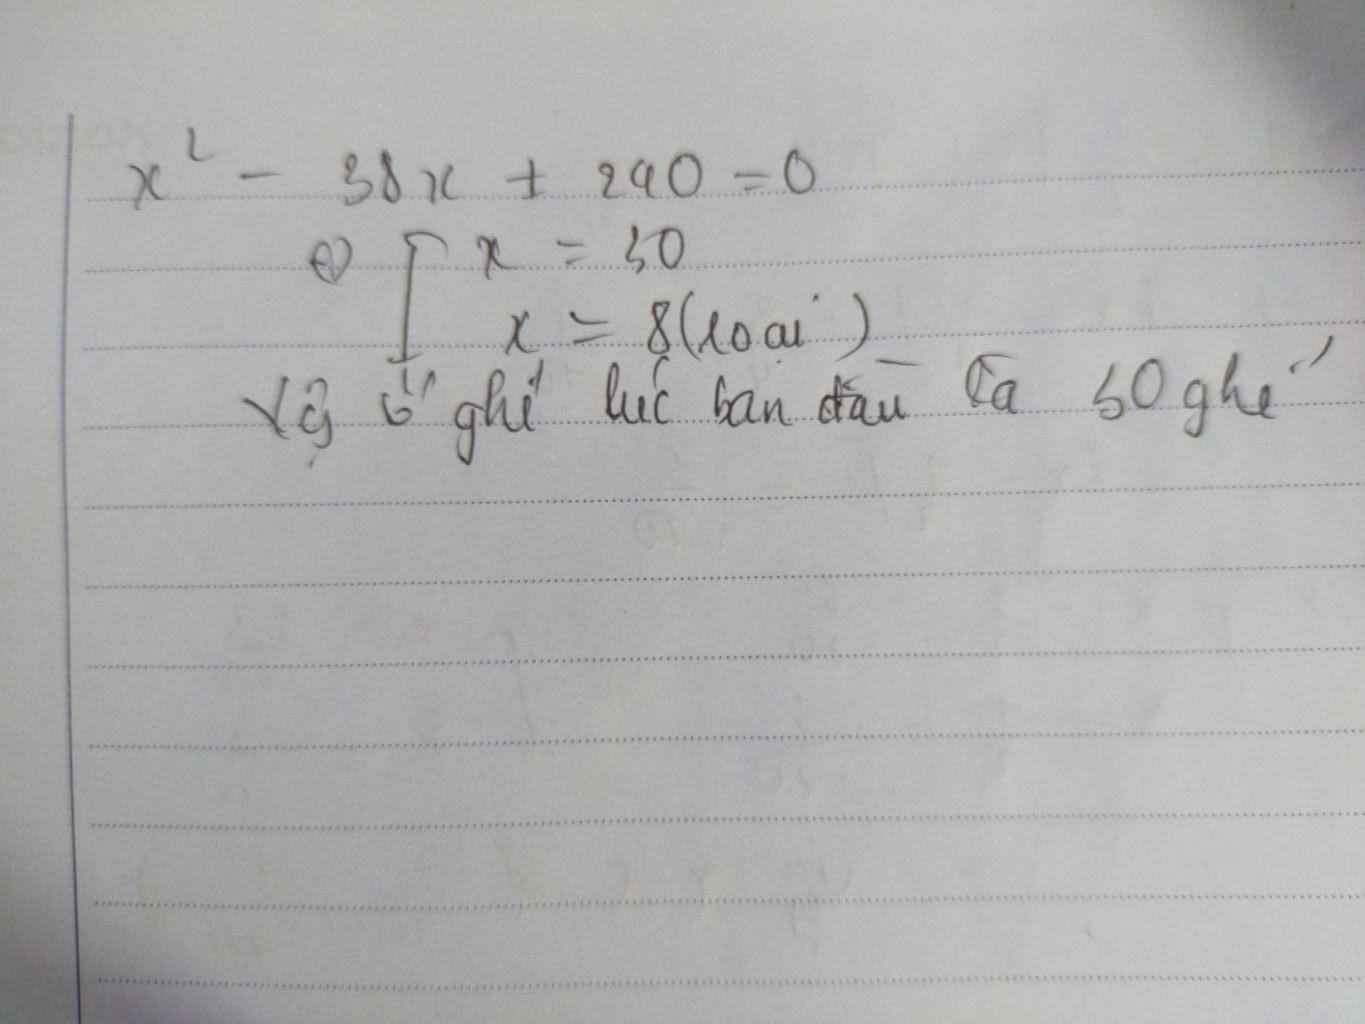 x² - 38x + 240 = 0
⇔ [ x = 30
x = 8 (loại)
Vậy số ghế lúc ban đầu là 30 ghế